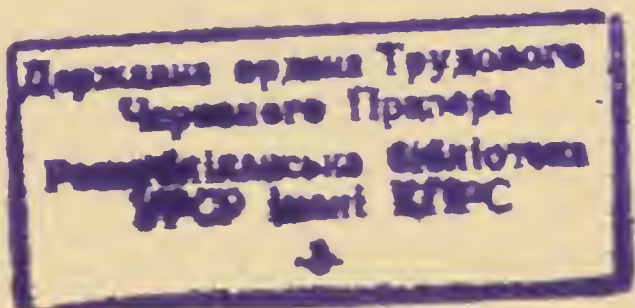 Державна ордена Трудового
Червоного Прапора
республіканська бібліотека
УРСР імені КПРС